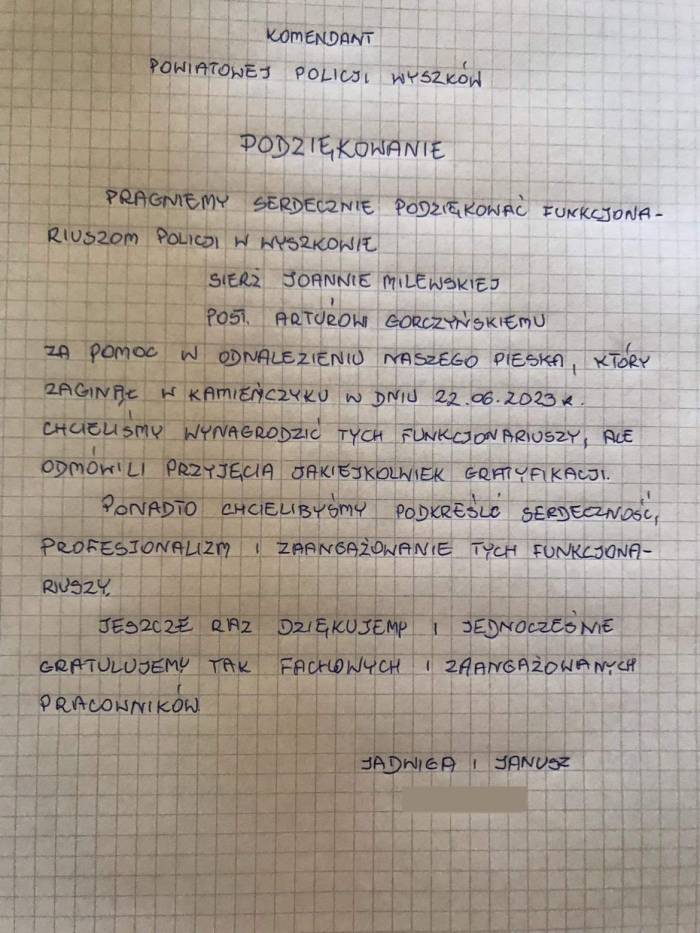 KOMENDANT
POWIATOWEJ POLICJI WYSZKÓW
PODZIĘKOWANIE
PRAGNIEMY SERDECZNIE PODZIĘKOWAĆ FUNKCJONA-
RIUSZOM POLICJI W WYSZKOWIE
SIERŻ JOANNIE MILEWSKIEJ
POST. ARTUROWI GORCZYŃSKIEMU
ZA POMOC W ODNALEZIENIU NASZEGO PIESKA, KTÓRY
ZAGINĄŁ W KAMIEŃCZYKU W DNIU 22.06.2023 r.
CHCIELIŚMY WYNAGRODZIĆ TYCH FUNKCJONARIUSZY, ALE
ODMÓWILI PRZYJĘCIA JAKIEJKOLWIEK GRATYFIKACJI.
PONADTO CHCIELIBYŚMY PODKREŚLIĆ SERDECZNOŚĆ,
PROFESJONALIZM I ZAANGAŻOWANIE TYCH FUNKCJONA-
RIUSZY.
JESZCZE RAZ DZIĘKUJEMY I JEDNOCZEŚNIE
GRATULUJEMY TAK FACHOWYCH I ZAANGAŻOWANYCH
PRACOWNIKÓW.
JADWIGA I JANUSZ